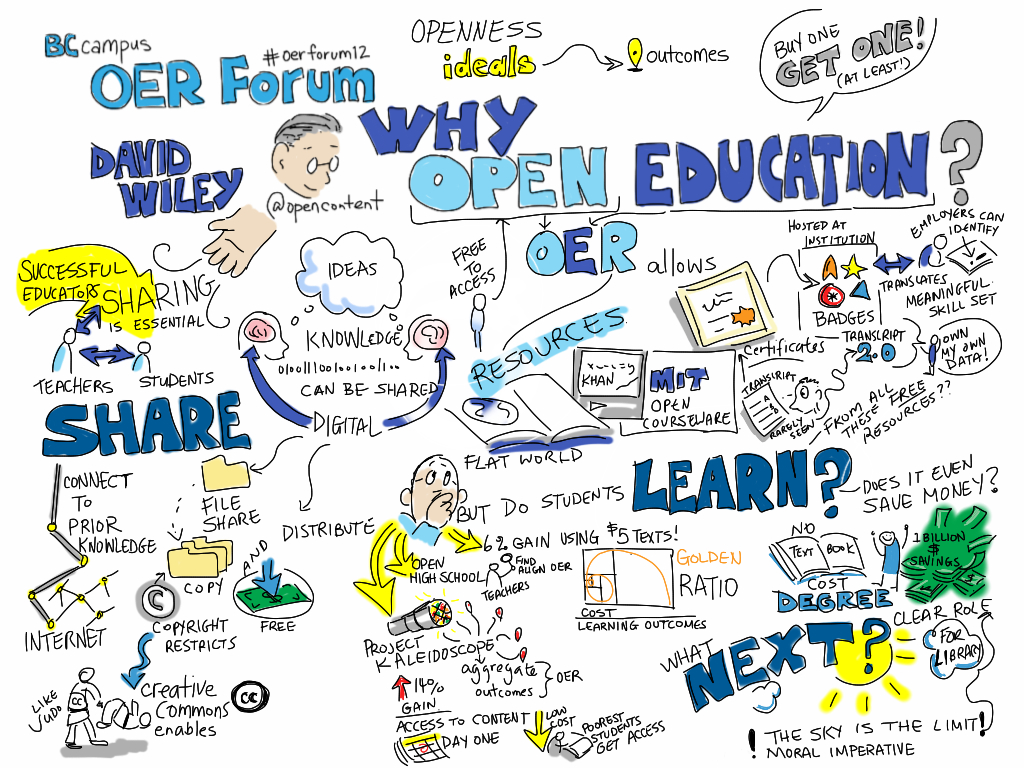 BCcampus
#oerforum12
OER Forum
OPENNESS
ideals
outcomes
BUY ONE
GET ONE!
(AT LEAST!)
DAVID
WILEY
@opencontent
WHY
OPEN EDUCATION?
SUCCESSFUL
EDUCATORS
SHARING
IS ESSENTIAL
TEACHERS
STUDENTS
IDEAS
KNOWLEDGE
CAN BE SHARED
DIGITAL
FREE
TO
ACCESS
OER
allows
RESOURCES
KHAN
MIT
OPEN
COURSEWARE
FLAT WORLD
HOSTED AT
INSTITUTION
BADGES
EMPLOYERS CAN
IDENTIFY
TRANSLATES
MEANINGFUL
SKILL SET
Certificates
TRANSCRIPT
2.0
OWN
MY OWN
DATA!
TRANSCRIPT
A
B
A
RARELY
SEEN
FROM ALL
THESE FREE
RESOURCES??
SHARE
CONNECT
TO
PRIOR
KNOWLEDGE
INTERNET
FILE
SHARE
COPY
DISTRIBUTE
AND
FREE
©
COPYRIGHT
RESTRICTS
LIKE
JUDO
CC
creative
commons
enables
CC
BUT DO STUDENTS
LEARN?
DOES IT EVEN
SAVE MONEY?
6% GAIN USING $5 TEXTS!
OPEN
HIGH SCHOOL
FIND
ALIGN OER
TEACHERS
PROJECT
KALEIDOSCOPE
aggregate
outcomes
OER
14%
GAIN
ACCESS TO CONTENT
DAY ONE
LOW
COST
POOREST
STUDENTS
GET ACCESS
GOLDEN
RATIO
COST
LEARNING OUTCOMES
NO
TEXT BOOK
COST
DEGREE
1 BILLION
$
SAVINGS
CLEAR ROLE
FOR
LIBRARY
WHAT
NEXT?
! THE SKY IS THE LIMIT!
MORAL IMPERATIVE